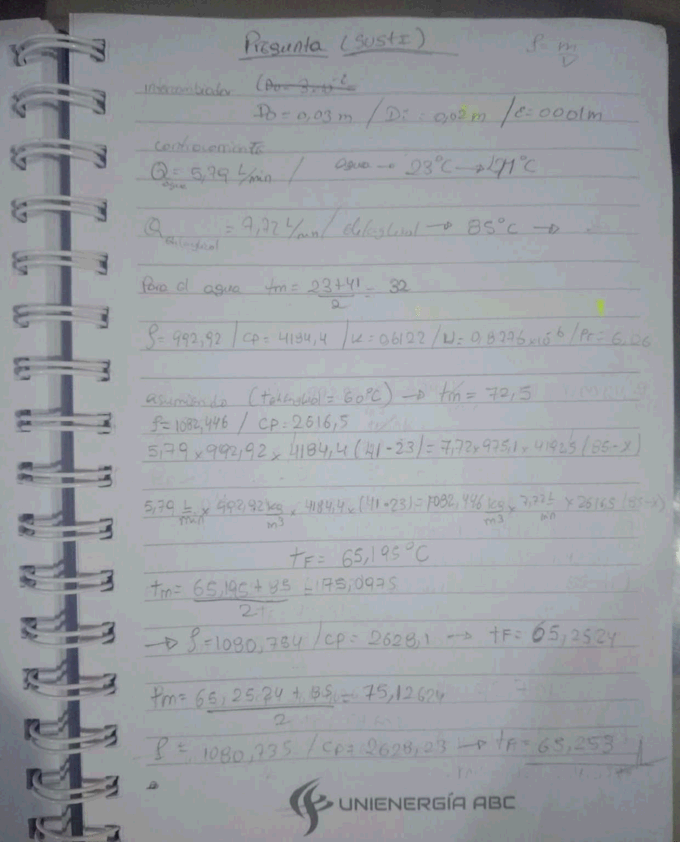 Pregunta (SUSTI)
ρ = m/V
intercambiador (Do = 3x10^-2
Do = 0,03 m / Di = 0,02 m / ε = 0001m
contracorriente
Q agua = 5,79 L/min / agua → 23°C → 41°C
Q etilenglicol = 7,72 L/min / etilenglicol → 85°C →
Para el agua tm = 23+41/2 = 32
ρ = 992,92 / Cp = 4184,4 / K = 0,6122 / N = 0,8226x10^-6 / Pr = 6.06
asumiendo (t etilenglicol = 60°C) → tm = 72,5
ρ = 1082,446 / Cp = 2616,5
5,79 x 992,92 x 4184,4 (41 - 23) = 7,72 x 975,1 x 4192,5 (85 - x)
5,79 L/min x 992,92 kg/m3 x 4184,4 x (41-23) = 1082,446 kg/m3 x 7,72 L/min x 2616,5 (85-x)
tF = 65,195°C
tm = 65,195 + 85/2 = 75,0975
→ ρ = 1080,754 / Cp = 2628,1 → tF = 65,2524
tm = 65,2524 + 85/2 = 75,12624
ρ = 1080,735 / Cp = 2628,23 → tF = 65,253
UNIENERGÍA ABC